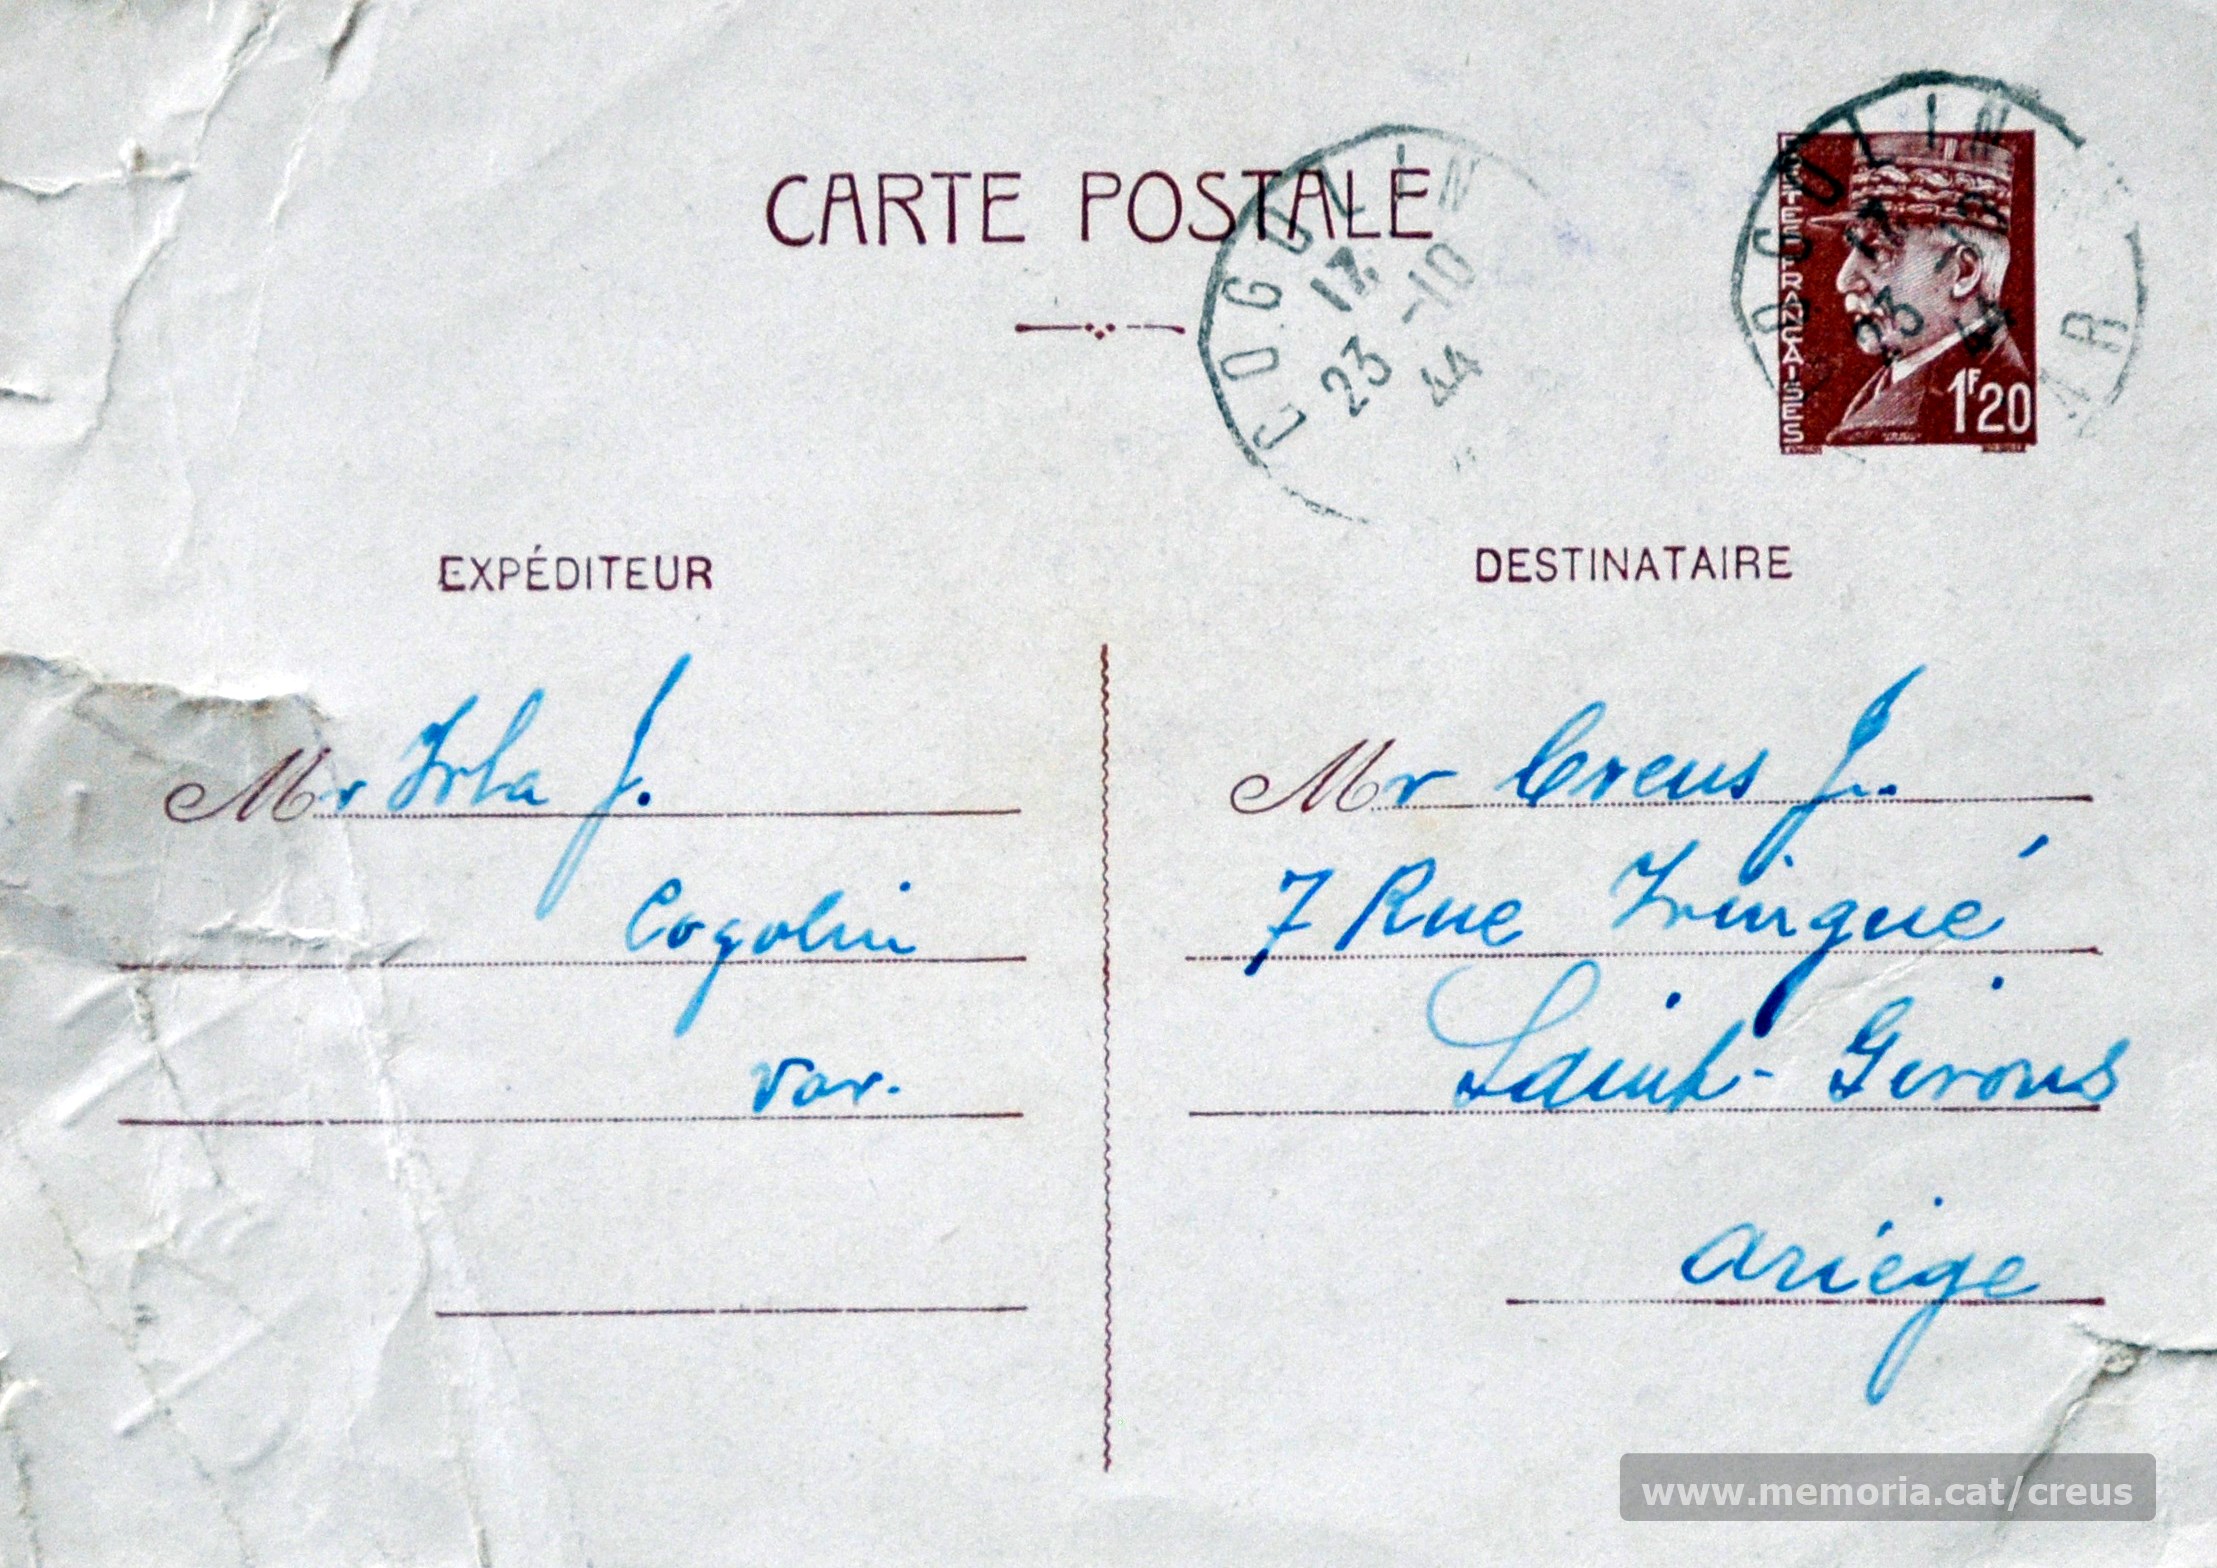 CARTE POSTALE
COGOLIN
17
23 -10
44
COGOLIN
17
23
VAR
POSTES FRANÇAISES
1F20
EXPÉDITEUR
DESTINATAIRE
Mr Irla J.
Cogolin
Var.
Mr Creus J.
7 Rue Tringué
Saint-Girons
Ariège
www.memoria.cat/creus